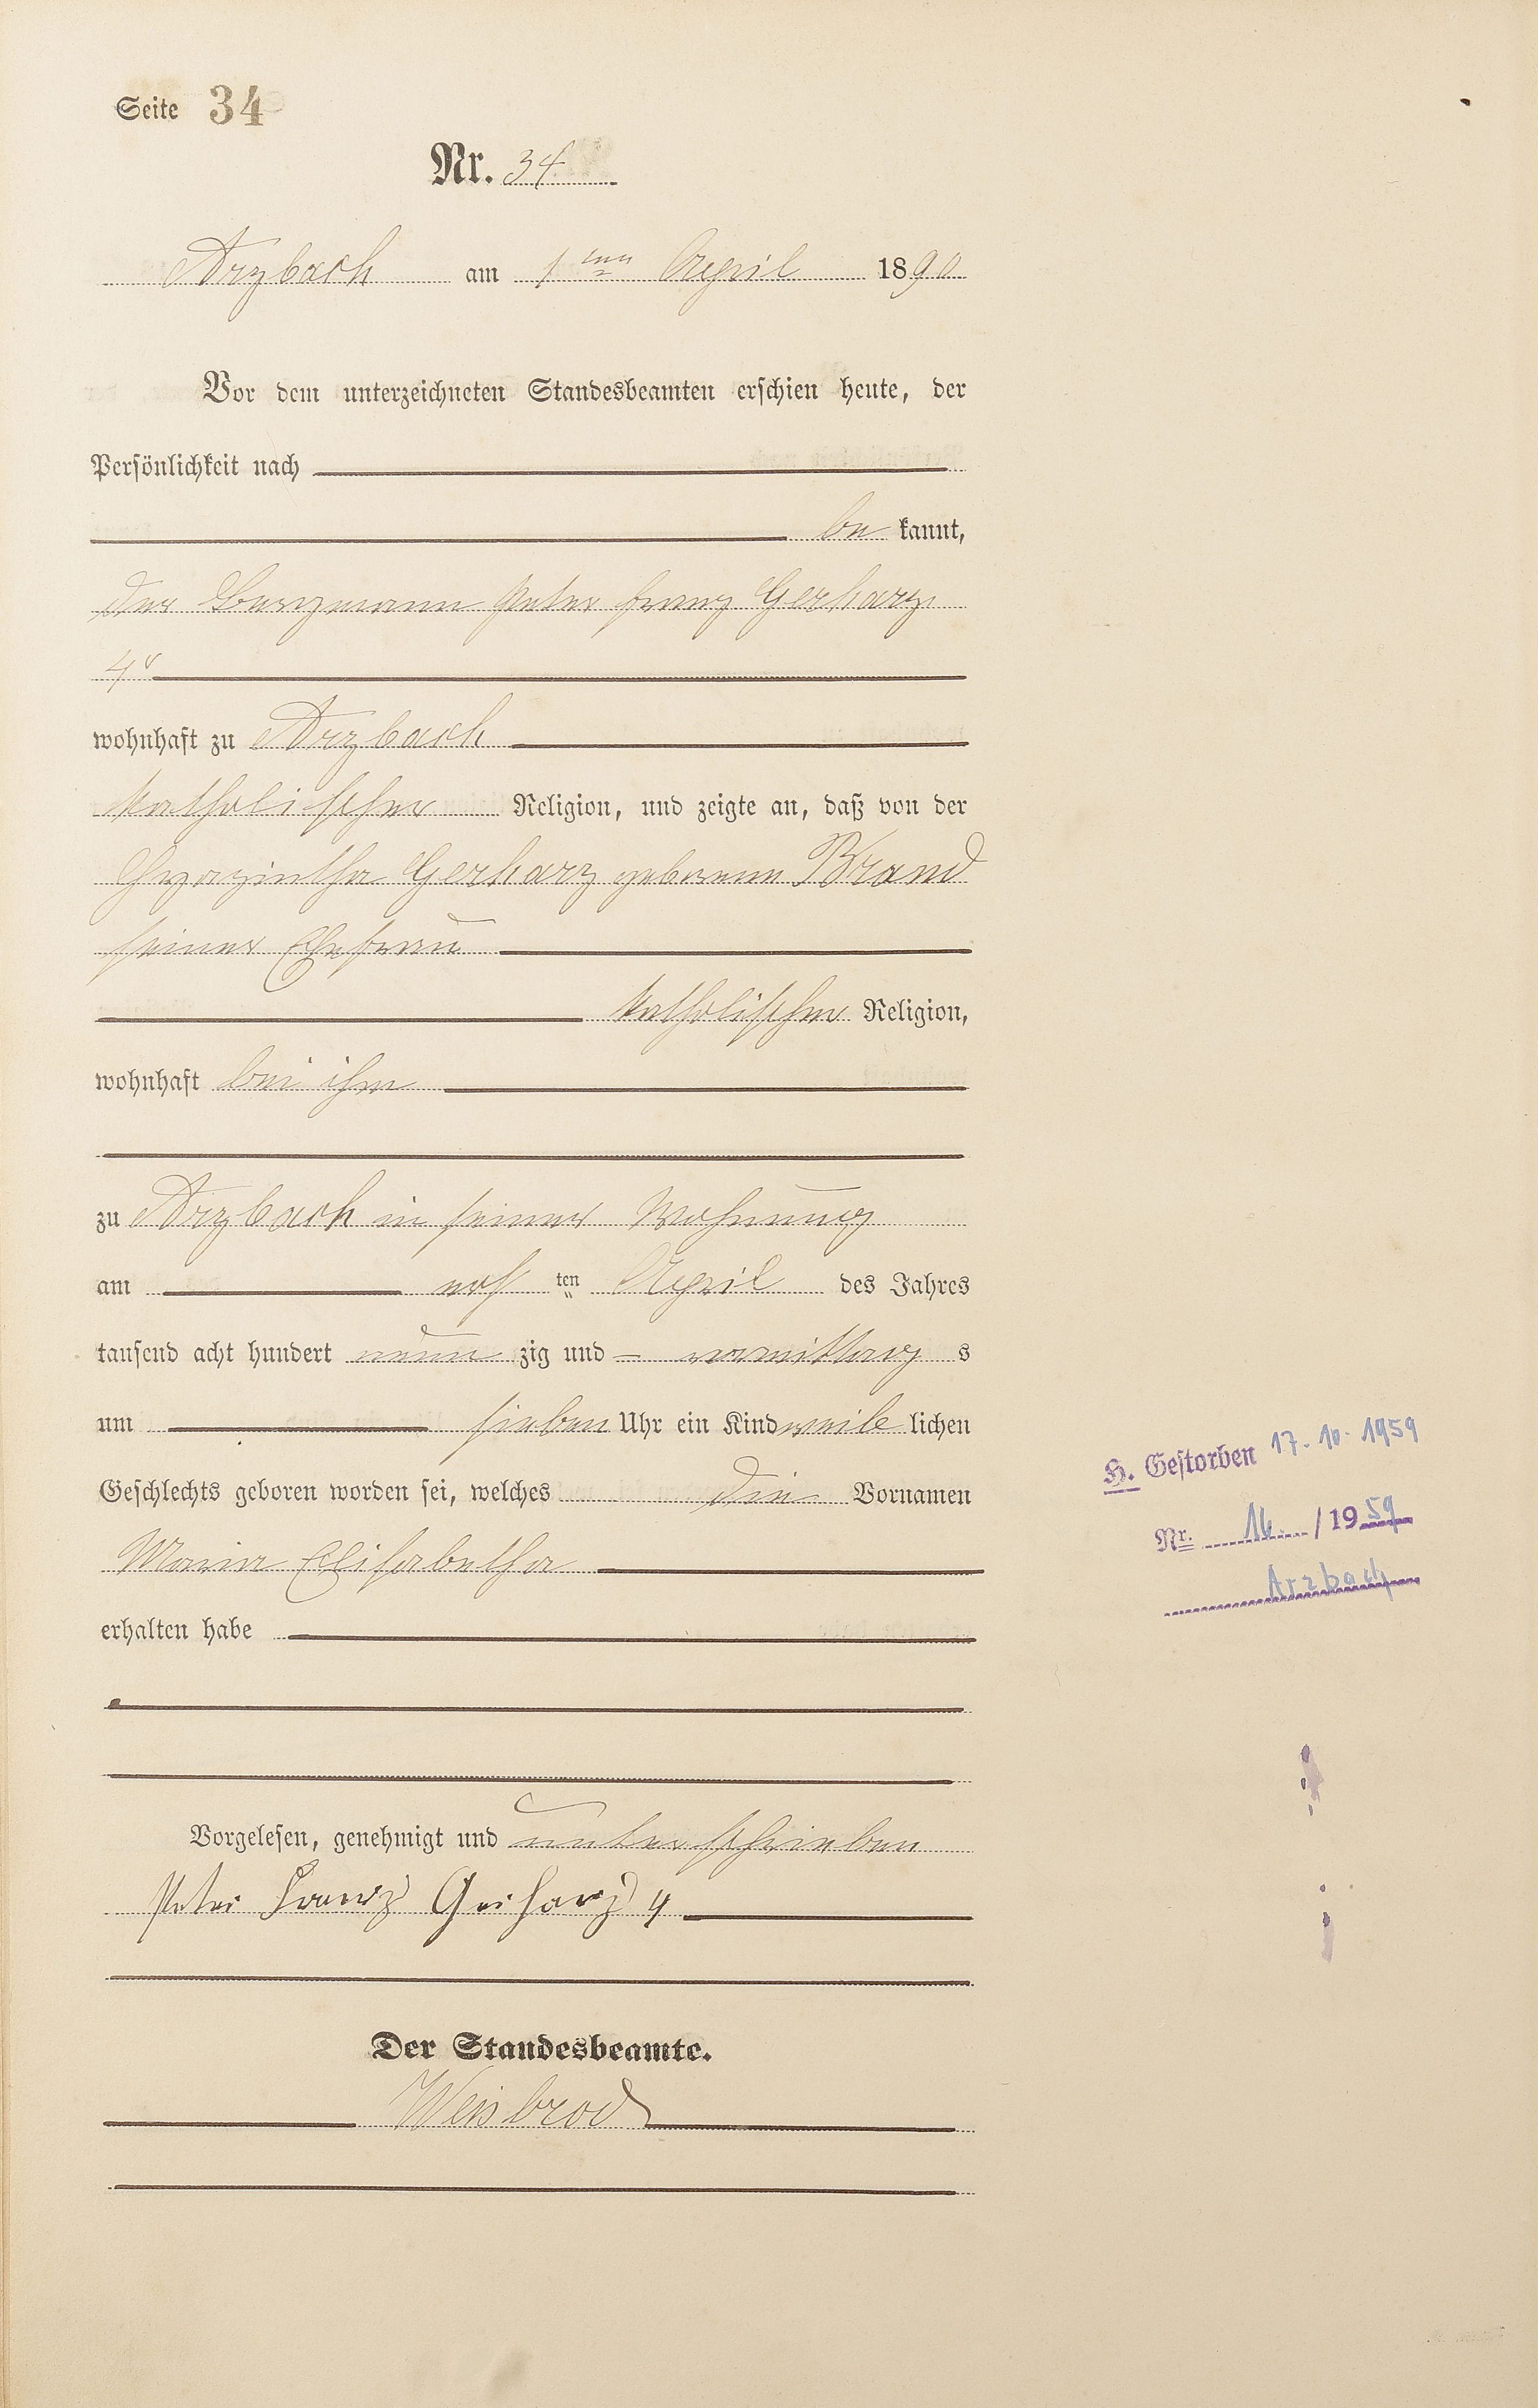 Seite 34
Nr. 34
Arzbach am 1ten April 1890
Vor dem unterzeichneten Standesbeamten erschien heute, der
Persönlichkeit nach
be kannt,
der Bergmann Peter Franz Gerharz
4r
wohnhaft zu Arzbach
katholischer Religion, und zeigte an, daß von der
Gerharz geborene Brand
seiner Ehefrau
katholischer Religion,
wohnhaft bei ihm
zu Arzbach in seiner Wohnung
am ersten April des Jahres
tausend acht hundert neunzig und - vormittags
um sieben Uhr ein Kind weiblichen
Geschlechts geboren worden sei, welches die Vornamen
Maria Elisabetha
erhalten habe
Vorgelesen, genehmigt und unterschrieben
Peter Franz Gerharz 4
Der Standesbeamte.
Weisbrod
H. Gestorben 17.10.1959
Nr. 16 / 1959
Arzbach